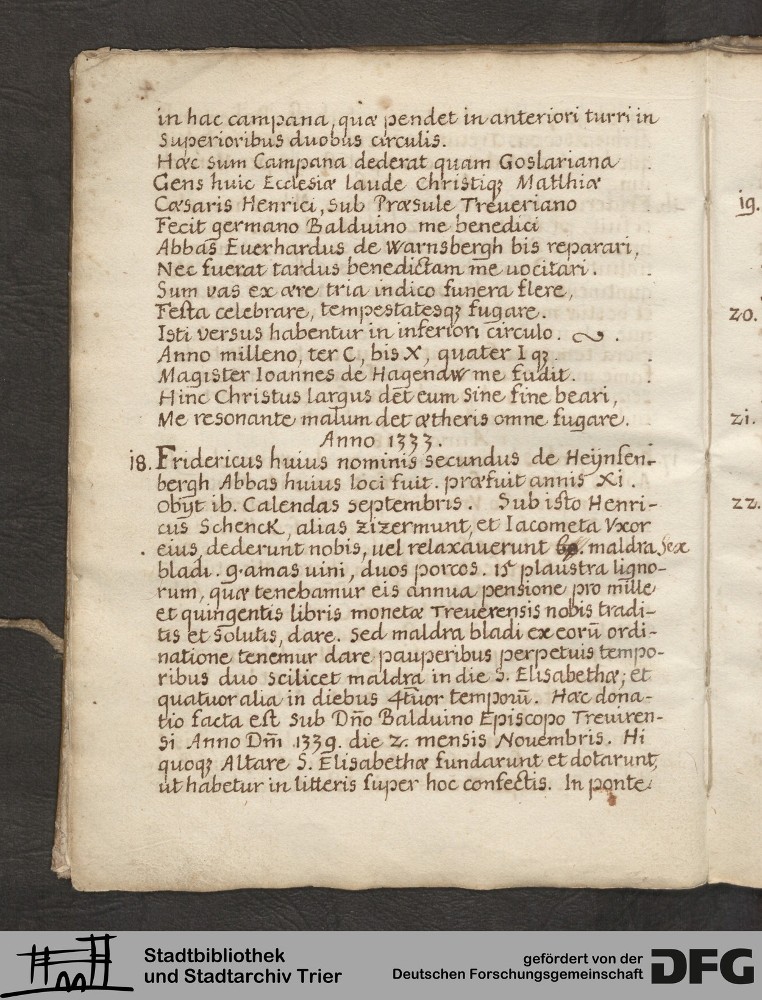 in hac campana, quæ pendet in anteriori turri in
superioribus duobus circulis.
Hæc sum Campana dederat quam Goslariana
Gens huic Ecclesiæ laude Christiqȝ Matthiæ
Cæsaris Henrici, sub Præsule Treveriano
Fecit germano Balduino me benedici
Abbas Everhardus de Warnsbergh bis reparari,
Nec fuerat tardus benedictam me vocitari.
Sum vas ex ære tria indico funera flere,
Festa celebrare, tempestatesqȝ fugare.
Isti versus habentur in inferiori circulo.
Anno milleno, ter C, bis X, quater I qȝ.
Magister Ioannes de Hagendw me fudit.
Hinc Christus largus det eum sine fine beari,
Me resonante malum det ætheris omne fugare.
Anno 1333.
18. Fridericus huius nominis secundus de Heÿnsen-
bergh Abbas huius loci fuit. præfuit annis XI.
Obÿt ib. Calendas septembris. Sub isto Henri-
cus Schenck, alias zizermunt, et Iacometa Vxor
eius, dederunt nobis, vel relaxaverunt maldra sex
bladi. 9. amas vini, duos porcos. 15 plaustra ligno-
rum, quæ tenebamur eis annua pensione pro mille
et quingentis libris monetæ Treverensis nobis tradi-
tis et solutis, dare. Sed maldra bladi ex eorū ordi-
natione tenemur dare pauperibus perpetuis tempo-
ribus duo scilicet maldra in die S. Elisabethæ; et
quatuor alia in diebus 4tuor temporū. Hæc dona-
tio facta est sub Dn̄o Balduino Episcopo Treviren-
si Anno Dm̄ 1339. die 2. mensis Novembris. Hi
quoqȝ Altare S. Elisabethæ fundarunt et dotarunt,
ut habetur in litteris super hoc confectis. In ponte
19.
20.
21.
22.
Stadtbibliothek
und Stadtarchiv Trier
gefördert von der
Deutschen Forschungsgemeinschaft
DFG